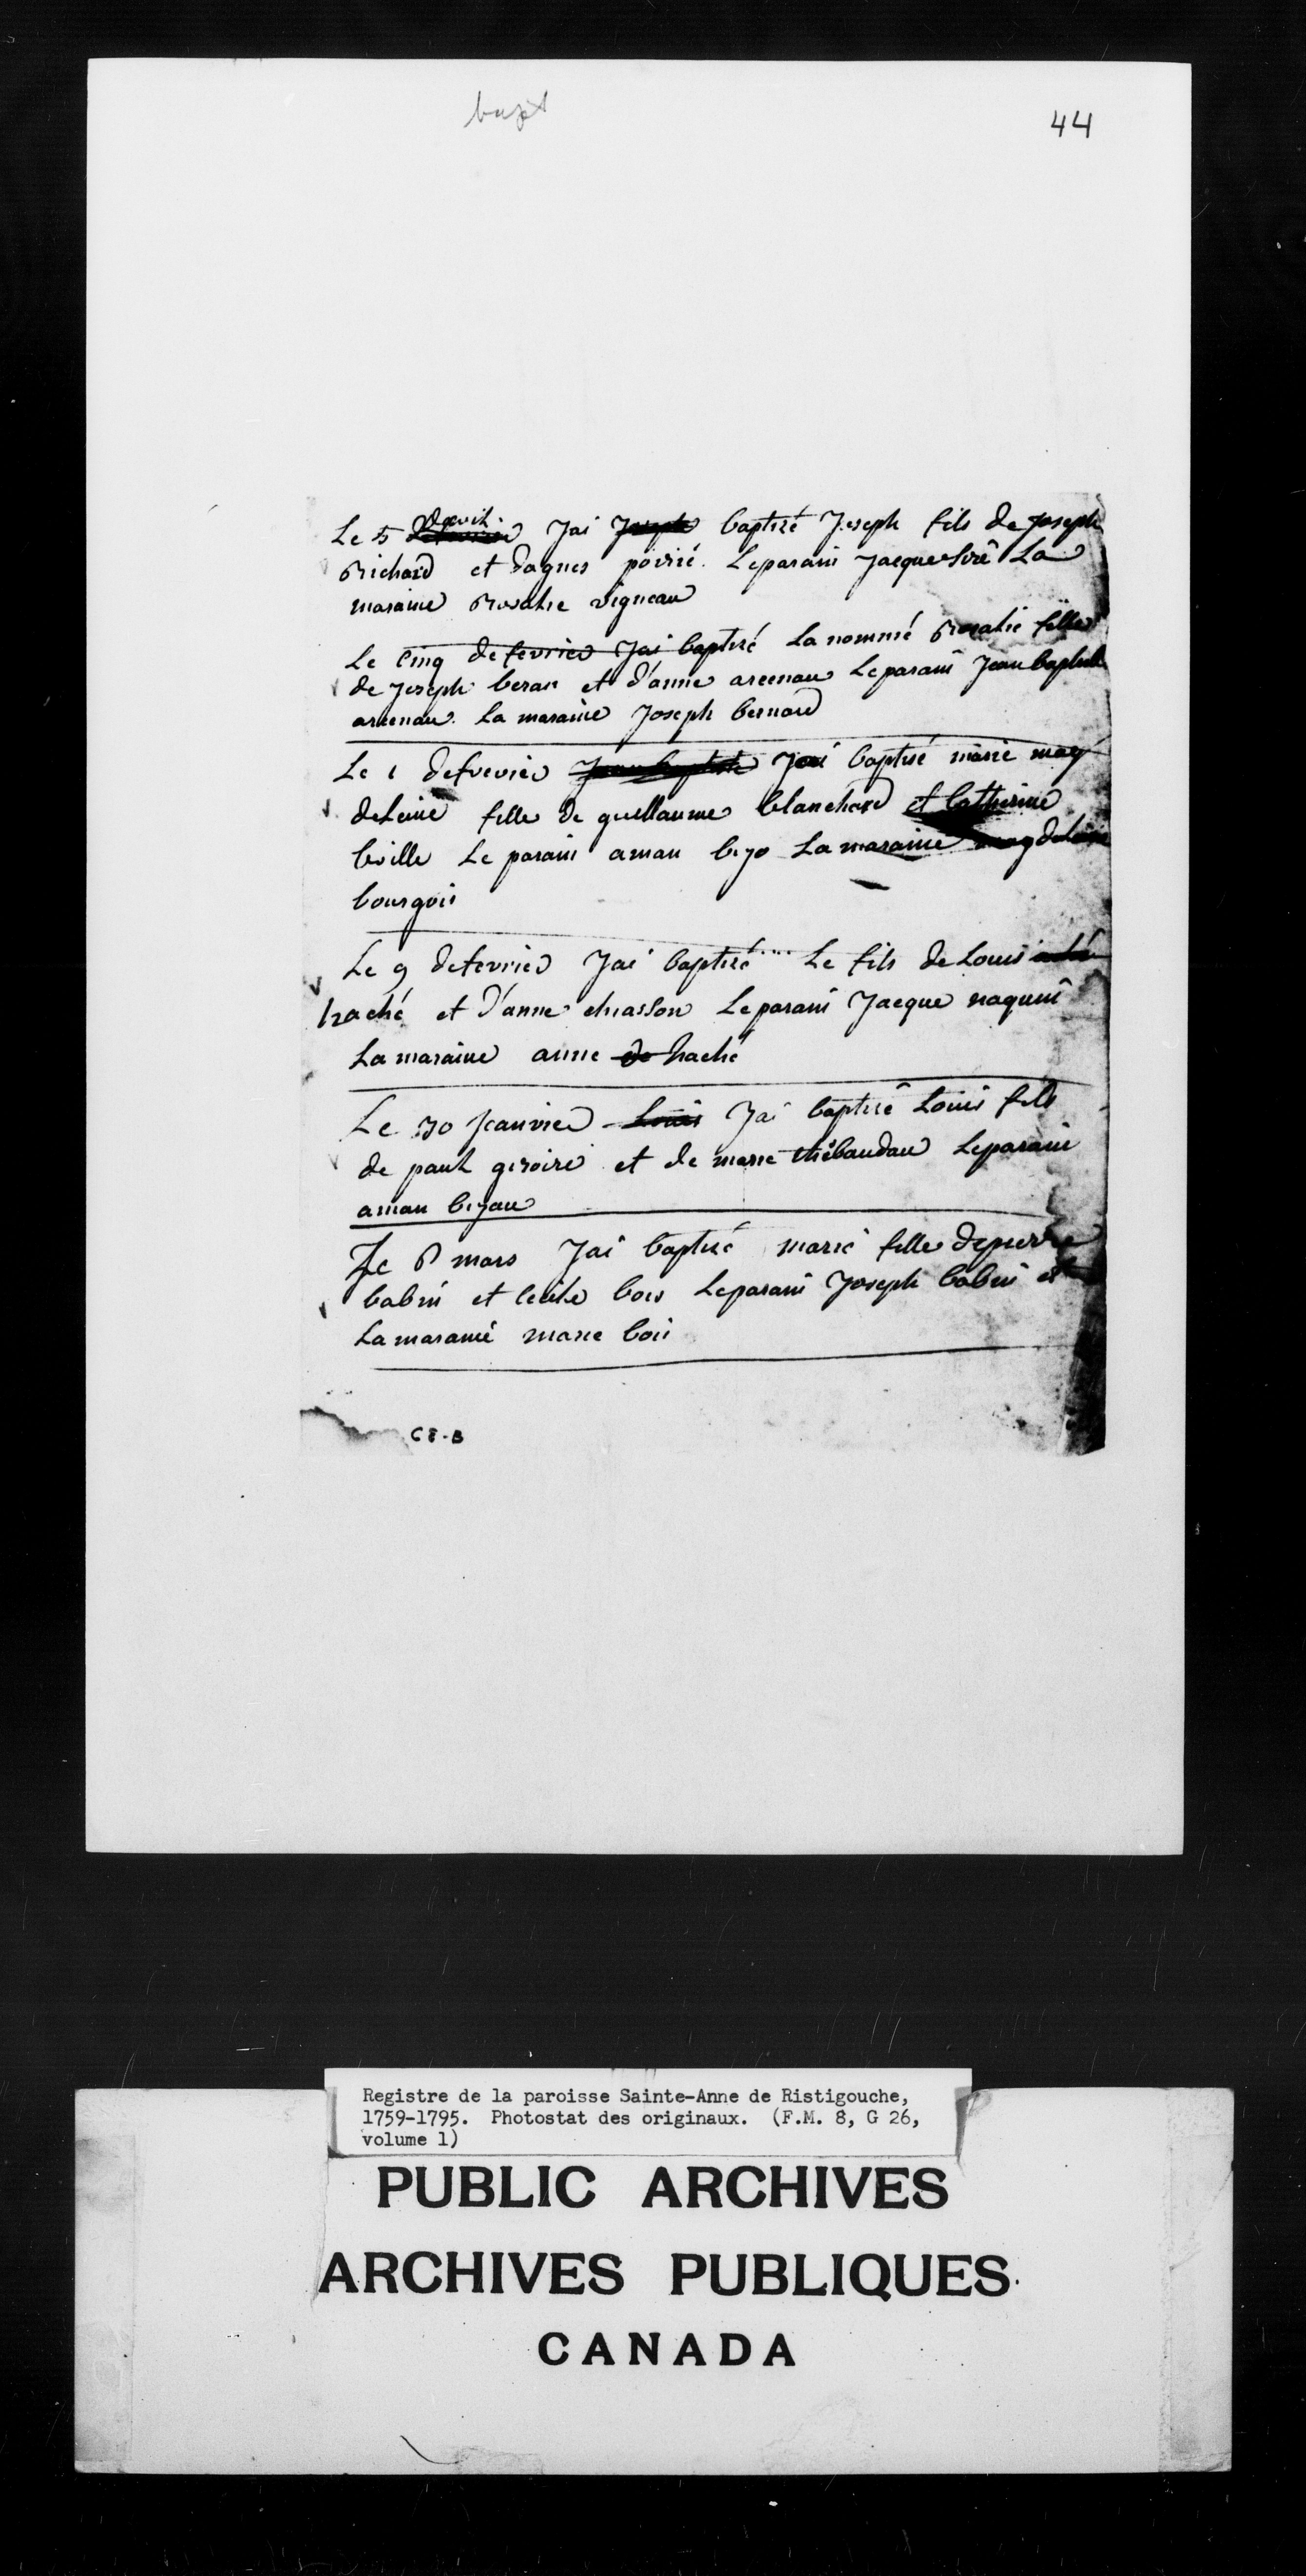 bapt
44
Le 5 davril jai baptisé Joseph fils de Joseph
Richard et dagnes poirié. Leparain jacque La
maraine Rosalie vigneau
Le cinq defevrier jai baptisé La nommé Rosalie fille
de joseph et d'anne arcenau Leparain jean baptiste
arcenau. La maraine Joseph bernard
Le 1 defevrier jean baptiste jai baptisé marie mag
deleine fille de guillaume blanchard et Catherine
Leparain aman bijo La maraine magdelaine
bourgois
Le 9 defevrier jai baptisé .... Le fils de Louis
haché et d'anne chiasson Leparain jacque naquin
La maraine anne de haché
Le 30 jeanvier Louis jai baptisé Louis fils
de paul giroire et de marie thébaudau Leparain
aman bijau
Le 6 mars jai baptisé marie fille depierre
babin et cecile bois Leparain joseph babin et
La maraine marie bois
C8-B
Registre de la paroisse Sainte-Anne de Ristigouche,
1759-1795. Photostat des originaux. (F.M. 8, G 26,
volume 1)
PUBLIC ARCHIVES
ARCHIVES PUBLIQUES
CANADA